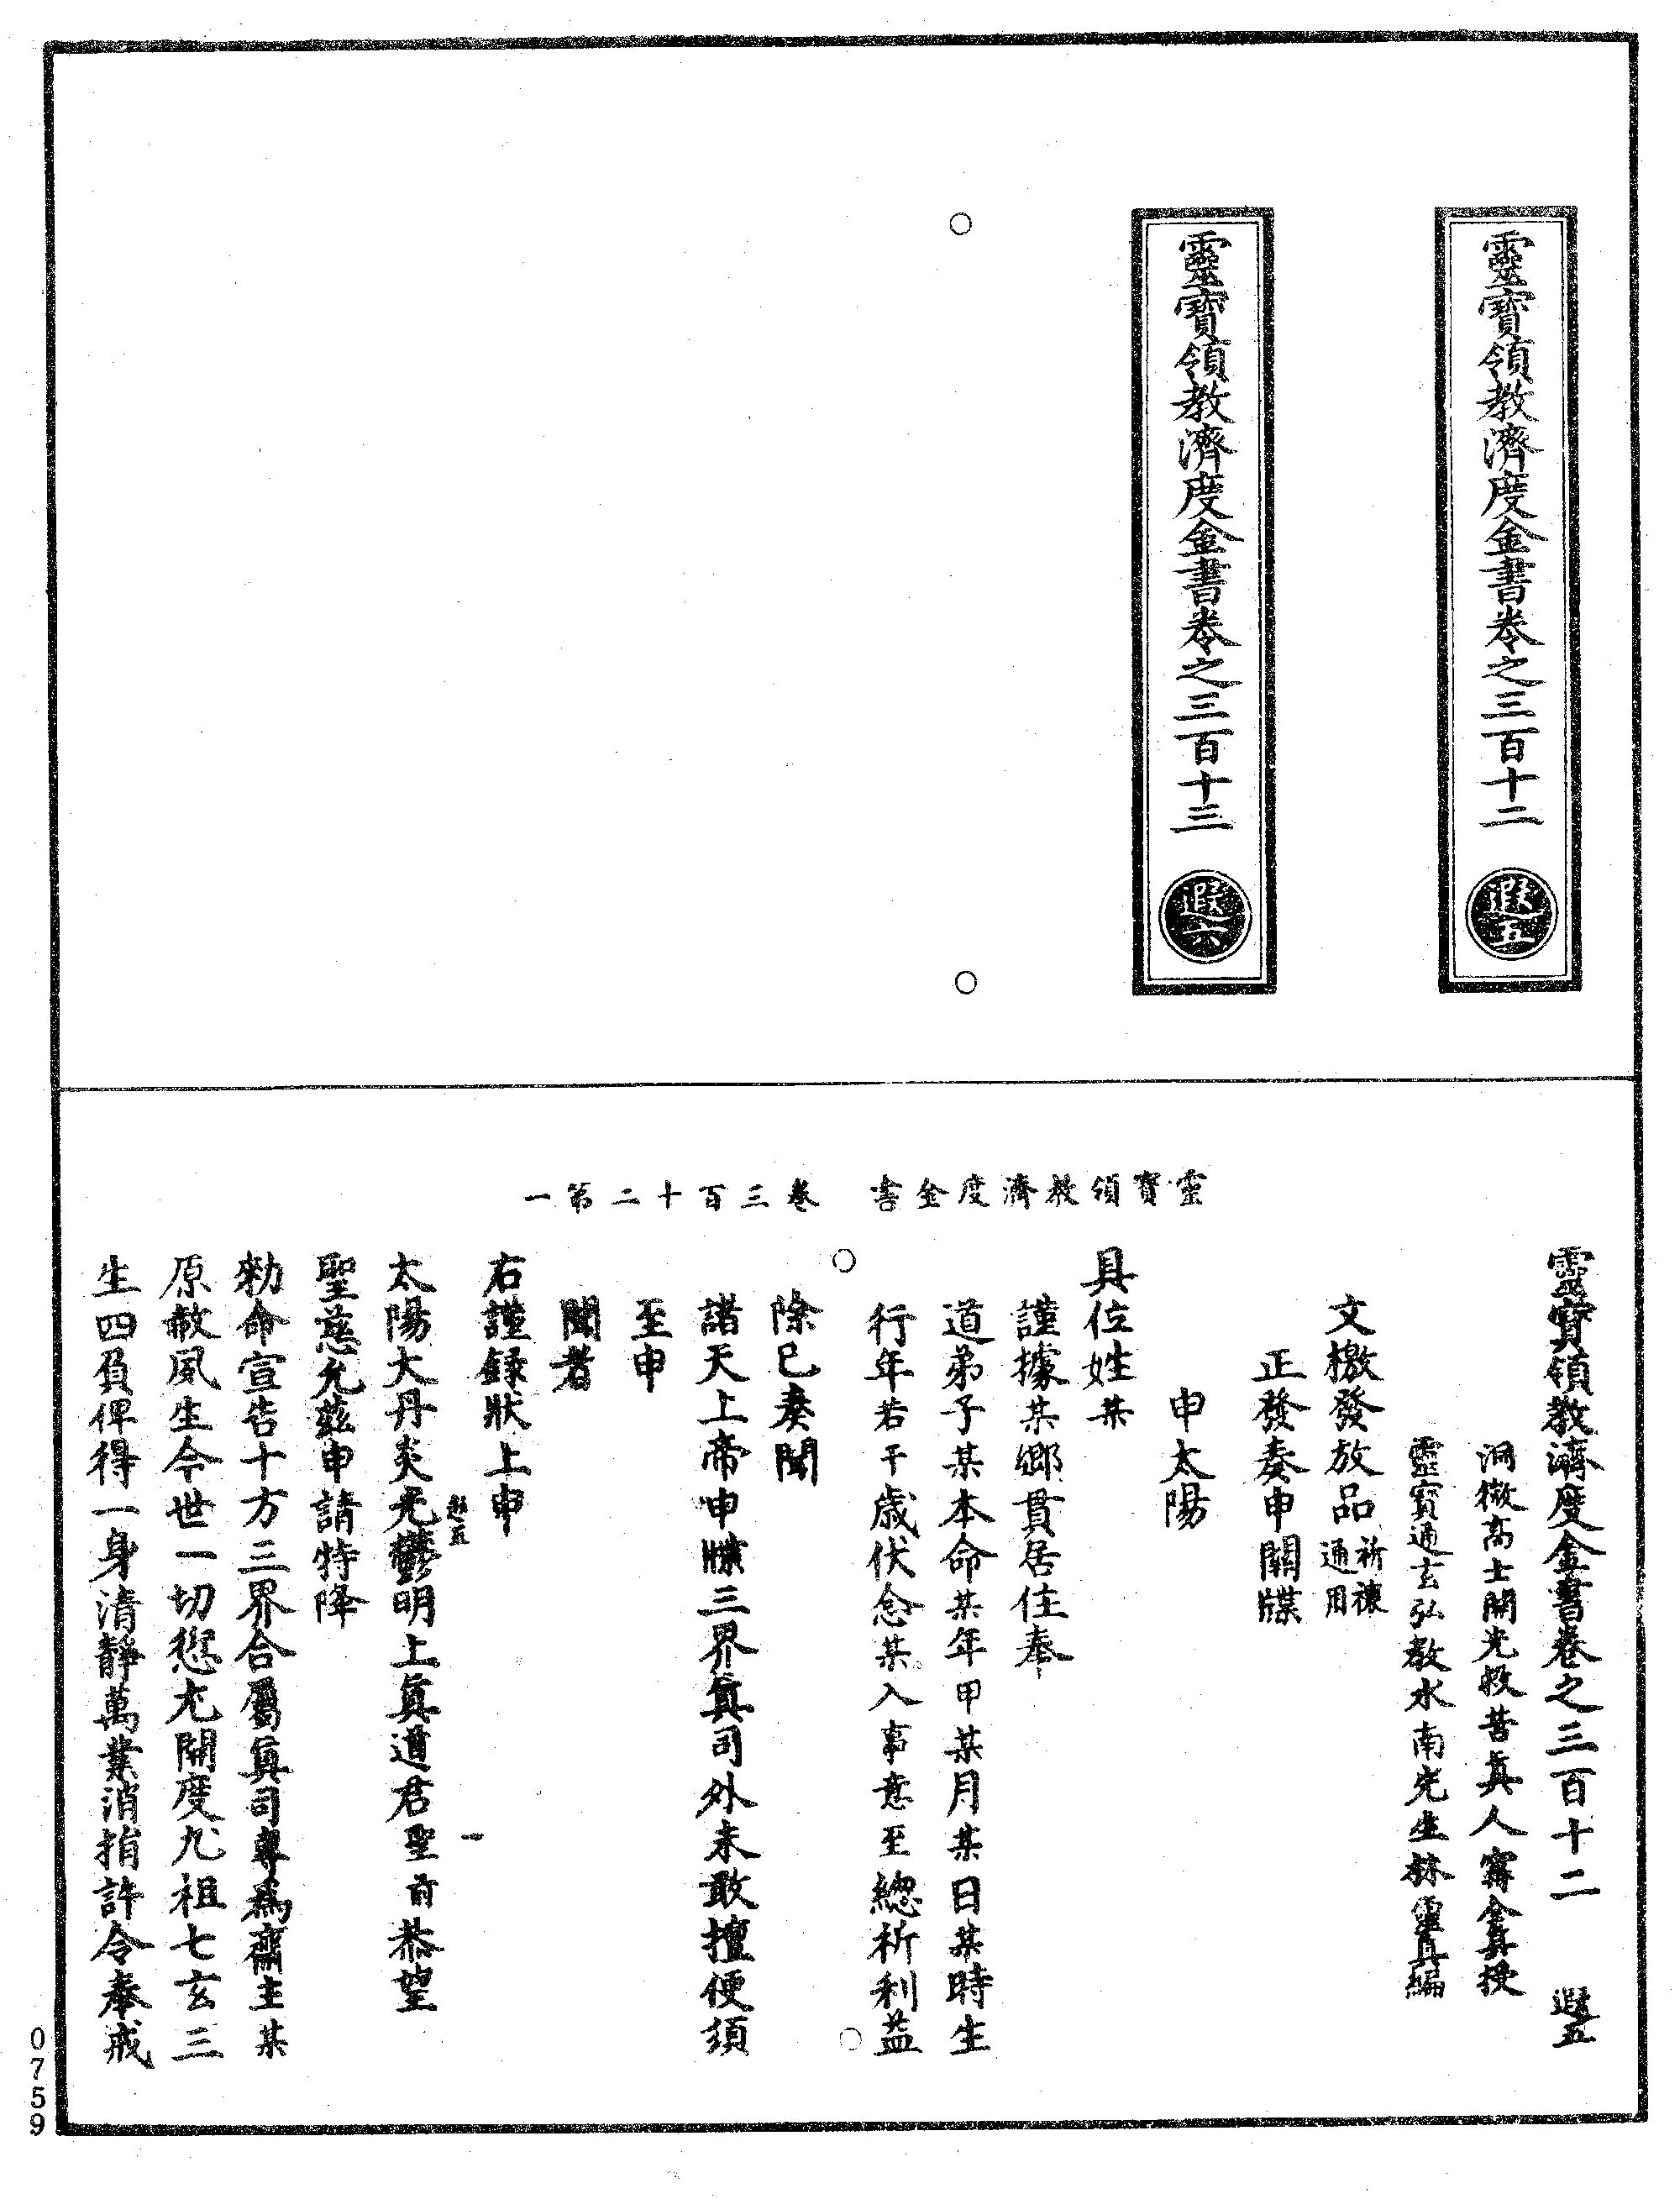 靈寶領教濟度金書卷之三百十二
遐五
靈寶領教濟度金書卷之三百十三
遐六
靈寶領教濟度金書 卷三百十二第一
靈寶領教濟度金書卷之三百十二 遐五
洞微高士開光救苦眞人寗全眞授
靈寶通玄弘教水南先生林靈眞編
文檄發放品祈禳通用
正發奏申關牒
申太陽
具位姓某
謹據某鄉貫居住奉
道弟子某本命某年甲某月某日某時生
行年若干歲伏念某入事意至總祈利益
除已奏聞
諸天上帝申牒三界眞司外未敢擅便須
至申
聞者
右謹錄狀上申
遐五 一
太陽大丹炎光鬱明上眞道君聖前恭望
聖慈允兹申請特降
勑命宣告十方三界合屬眞司專爲齋主某
原赦夙生今世一切愆尤開度九祖七玄三
生四負俾得一身清靜萬業消捐許令奉戒
0759